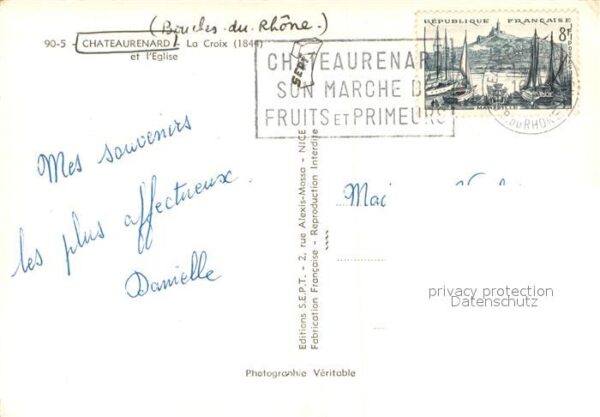 (Bouches-du-Rhône-)
90-5 - CHATEAURENARD - La Croix (1844)
et l'Eglise
SEPT
CHATEAURENARD
SON MARCHE DE
FRUITS ET PRIMEURS
REPUBLIQUE FRANÇAISE
8F
MARSEILLE
DU RHONE
Mes souvenirs
les plus affectueux.
Danielle
Editions S.E.P.T. - 2, rue Alexis-Mossa - NICE
Fabrication Française - Reproduction Interdite
privacy protection
Datenschutz
Photographie Véritable